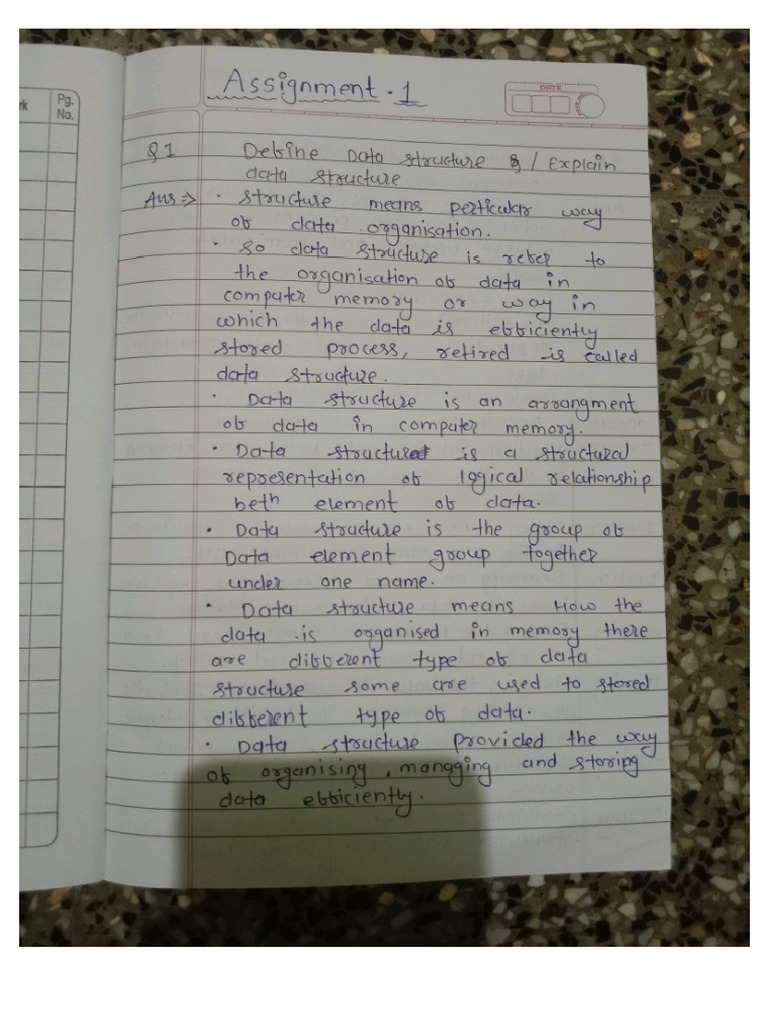 rk
Pg.
No.
Assignment - 1
DATE
Q.1 Define Data structure & / Explain
data structure
Ans => · structure means perticular way
of data organisation.
· so data structure is refer to
the organisation of data in
computer memory or way in
which the data is efficiently
stored process, retired is called
data structure.
· Data structure is an arrangment
of data in computer memory.
· Data structured is a structural
representation of logical relationship
betn element of data.
· Data structure is the group of
Data element group together
under one name.
· Data structure means How the
data is organised in memory there
are different type of data
structure some are used to stored
different type of data.
· Data structure provided the way
of organising, managing and storing
data efficiently.